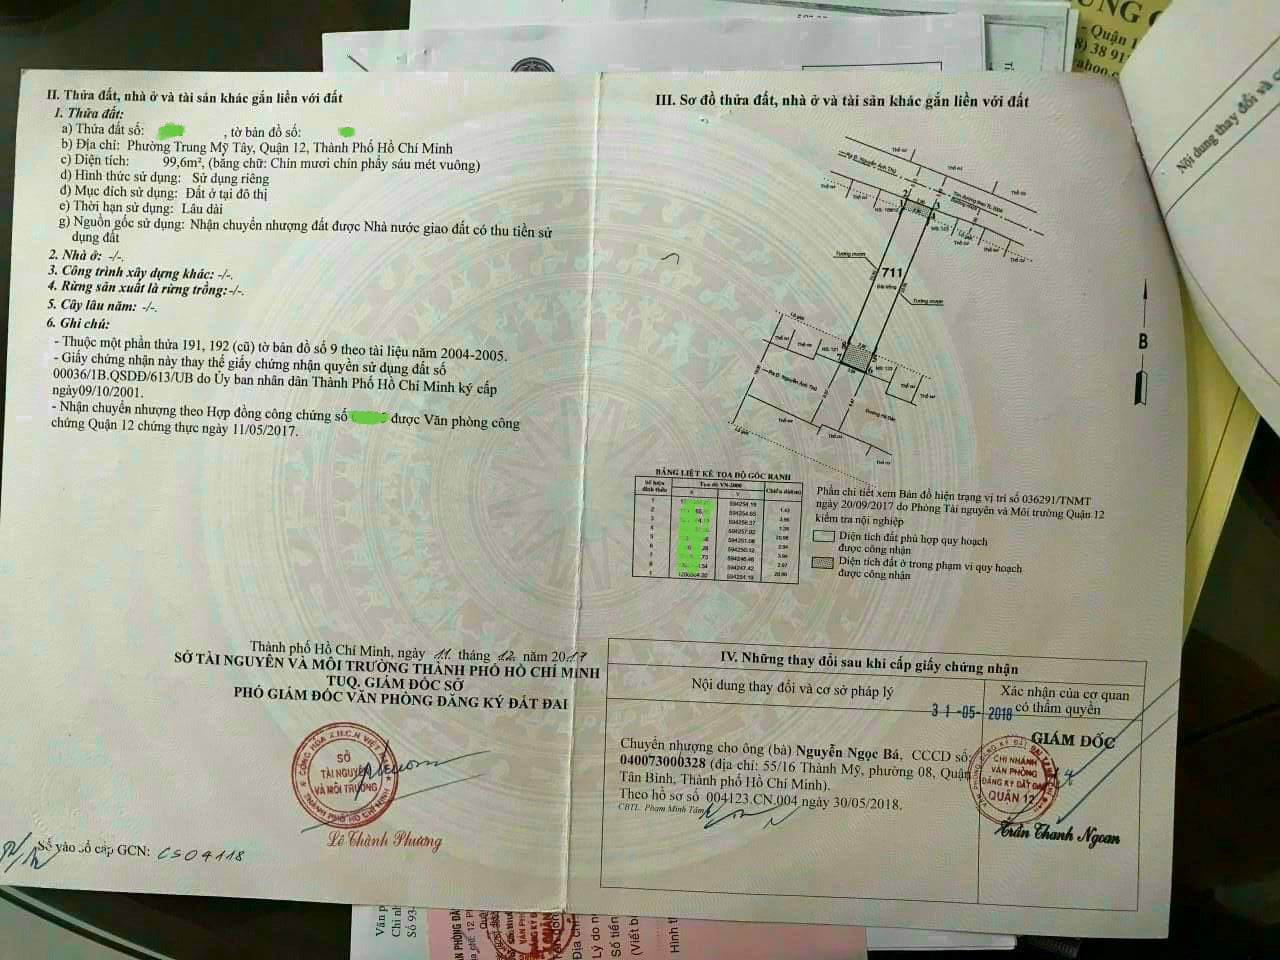 II. Thửa đất, nhà ở và tài sản khác gắn liền với đất
1. Thửa đất:
a) Thửa đất số: , tờ bản đồ số:
b) Địa chỉ: Phường Trung Mỹ Tây, Quận 12, Thành Phố Hồ Chí Minh
c) Diện tích: 99,6m², (bằng chữ: Chín mươi chín phẩy sáu mét vuông)
d) Hình thức sử dụng: Sử dụng riêng
đ) Mục đích sử dụng: Đất ở tại đô thị
e) Thời hạn sử dụng: Lâu dài
g) Nguồn gốc sử dụng: Nhận chuyển nhượng đất được Nhà nước giao đất có thu tiền sử
dụng đất
2. Nhà ở: -/-.
3. Công trình xây dựng khác: -/-.
4. Rừng sản xuất là rừng trồng:-/-.
5. Cây lâu năm: -/-.
6. Ghi chú:
- Thuộc một phần thửa 191, 192 (cũ) tờ bản đồ số 9 theo tài liệu năm 2004-2005.
- Giấy chứng nhận này thay thế giấy chứng nhận quyền sử dụng đất số
00036/1B.QSDĐ/613/UB do Ủy ban nhân dân Thành Phố Hồ Chí Minh ký cấp
ngày09/10/2001.
- Nhận chuyển nhượng theo Hợp đồng công chứng số được Văn phòng công
chứng Quận 12 chứng thực ngày 11/05/2017.
Thành phố Hồ Chí Minh, ngày 11 tháng 12 năm 2017
SỞ TÀI NGUYÊN VÀ MÔI TRƯỜNG THÀNH PHỐ HỒ CHÍ MINH
TUQ. GIÁM ĐỐC SỞ
PHÓ GIÁM ĐỐC VĂN PHÒNG ĐĂNG KÝ ĐẤT ĐAI
CỘNG HÒA X.H.C.N VIỆT NAM
SỞ
TÀI NGUYÊN
VÀ MÔI TRƯỜNG
THÀNH PHỐ HỒ CHÍ MINH
Lê Thành Phương
Số vào sổ cấp GCN: CS04118
III. Sơ đồ thửa đất, nhà ở và tài sản khác gắn liền với đất
711
Tường mượn
Tường mượn
Lề gôn
B
BẢNG LIỆT KÊ TỌA ĐỘ GÓC RANH
Số hiệu đỉnh thửa Tọa độ VN-2000 Chiều dài(m)
X Y
594254.19
594254.65 1.43
594258.37
594257.92
594251.08
594250.12
594246.46
594247.42
594254.19
Phần chi tiết xem Bản đồ hiện trạng vị trí số 036291/TNMT
ngày 20/09/2017 do Phòng Tài nguyên và Môi trường Quận 12
kiểm tra nội nghiệp
Diện tích đất phù hợp quy hoạch
được công nhận
Diện tích đất ở trong phạm vi quy hoạch
được công nhận
IV. Những thay đổi sau khi cấp giấy chứng nhận
Nội dung thay đổi và cơ sở pháp lý
Xác nhận của cơ quan
có thẩm quyền
31-05-2018
Chuyển nhượng cho ông (bà) Nguyễn Ngọc Bá, CCCD số:
040073000328 (địa chỉ: 55/16 Thành Mỹ, phường 08, Quận
Tân Bình, Thành phố Hồ Chí Minh).
Theo hồ sơ số 004123.CN.004 ngày 30/05/2018.
CBTL: Phạm Minh Tâm
GIÁM ĐỐC
CHI NHÁNH
VĂN PHÒNG
ĐĂNG KÝ ĐẤT ĐAI
QUẬN 12
Trần Thanh Ngoan
- Quận 1
8) 38 91
Nội dung thay đổi và c
Văn p
Chi nh
Số 93
Địa chỉ
Lý do n
Số tiền
(Viết b
Hình t